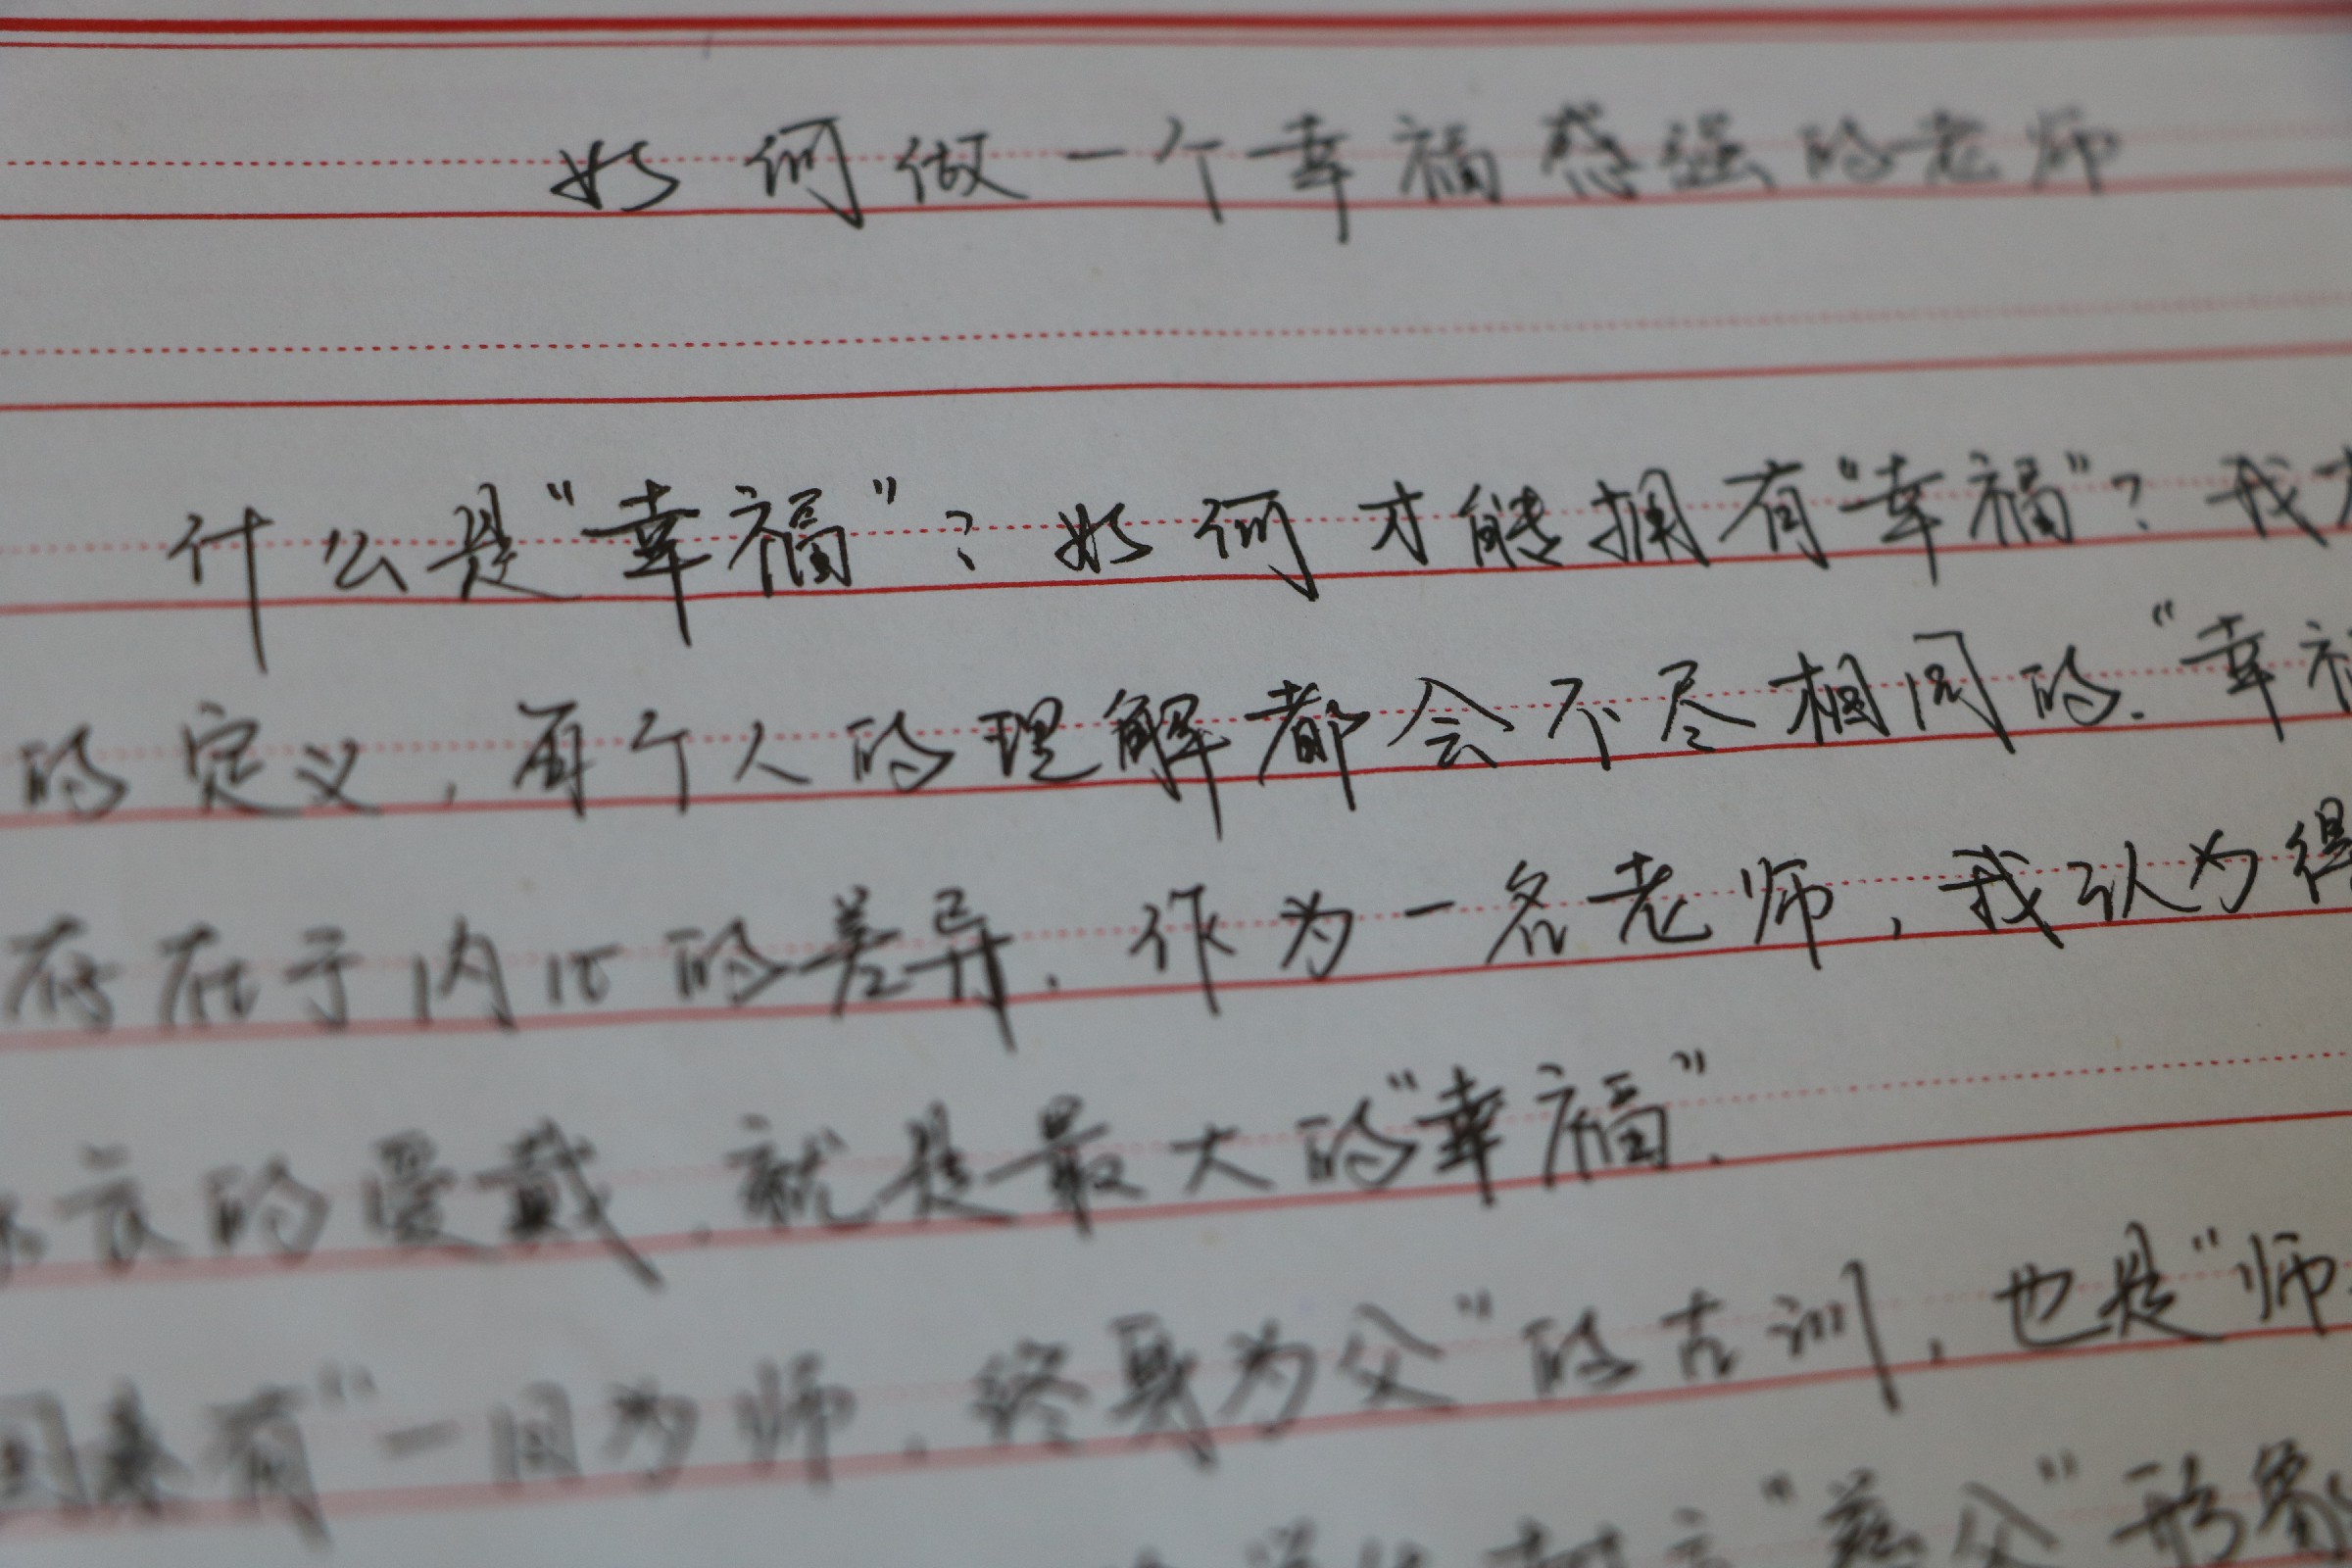 如何做一个幸福感强的老师
什么是“幸福”？如何才能拥有“幸福”？我
的定义，每个人的理解都会不尽相同的.“幸
存在于内心的差异.作为一名老师，我认为得
长的爱戴，就是最大的“幸福”.
有“一日为师，终身为父”的古训，也是“师
“慈父”形象